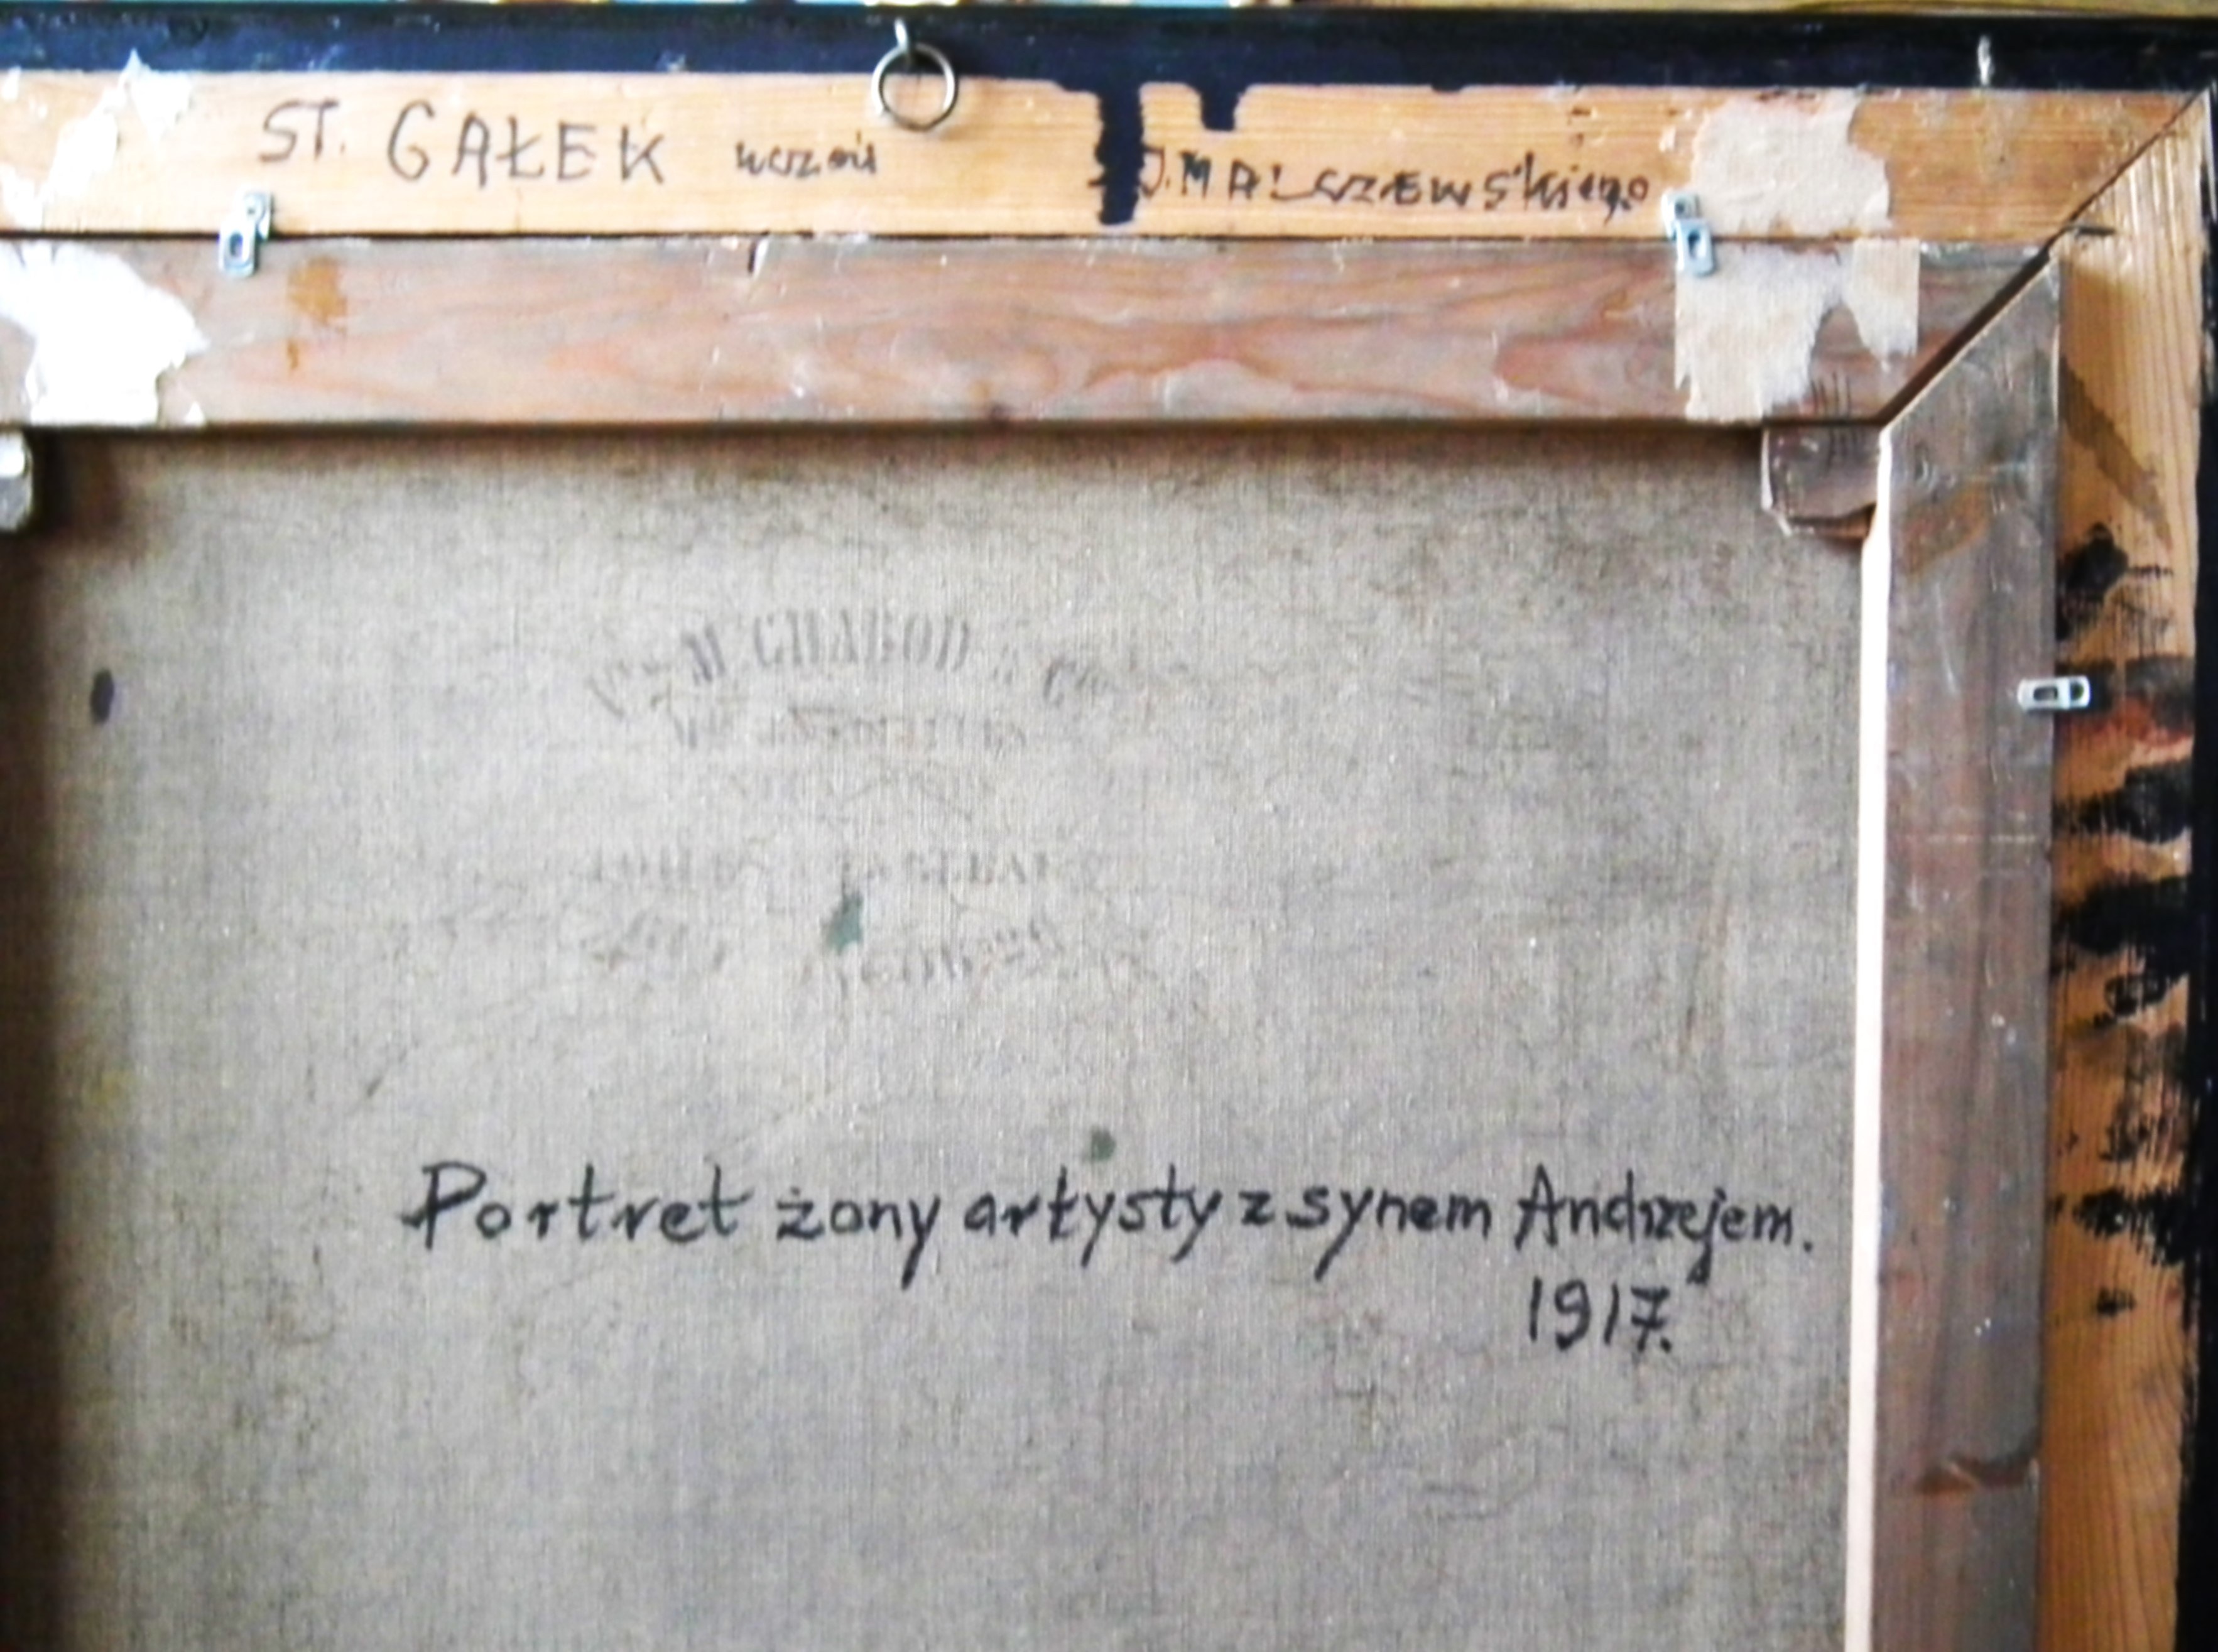 ST. GAŁEK uczeń J. MALCZEWSkiego
M. CHABOD & Cie
Portret żony artysty z synem Andrzejem.
1917.